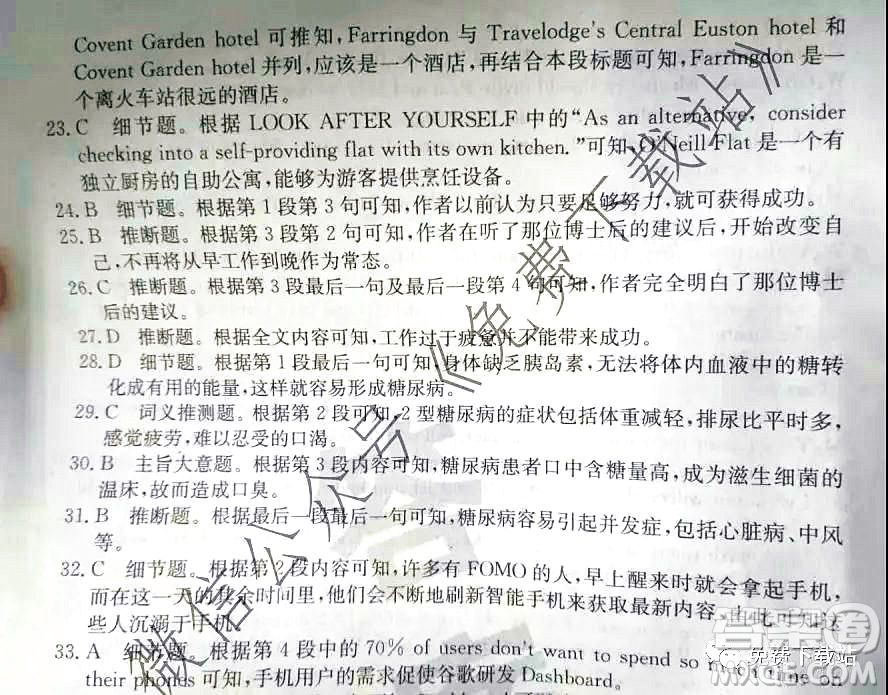 Covent Garden hotel 可推知,Farringdon 与 Travelodge's Central Euston hotel 和
Covent Garden hotel 并列,应该是一个酒店,再结合本段标题可知,Farringdon 是一
个离火车站很远的酒店。
23. C 细节题。根据 LOOK AFTER YOURSELF 中的“As an alternative, consider
checking into a self-providing flat with its own kitchen.”可知,O'Neill Flat 是一个有
独立厨房的自助公寓,能够为游客提供烹饪设备。
24. B 细节题。根据第 1 段第 3 句可知,作者以前认为只要足够努力,就可获得成功。
25. B 推断题。根据第 3 段第 2 句可知,作者在听了那位博士后的建议后,开始改变自
己,不再将从早工作到晚作为常态。
26. C 推断题。根据第 3 段最后一句及最后一段第 4 句可知,作者完全明白了那位博士
后的建议。
27. D 推断题。根据全文内容可知,工作过于疲惫并不能带来成功。
28. D 细节题。根据第 1 段最后一句可知,身体缺乏胰岛素,无法将体内血液中的糖转
化成有用的能量,这样就容易形成糖尿病。
29. C 词义推测题。根据第 2 段可知,2 型糖尿病的症状包括体重减轻,排尿比平时多,
感觉疲劳,难以忍受的口渴。
30. B 主旨大意题。根据第 3 段内容可知,糖尿病患者口中含糖量高,成为滋生细菌的
温床,故而造成口臭。
31. B 推断题。根据最后一段最后一句可知,糖尿病容易引起并发症,包括心脏病、中风
等。
32. C 细节题。根据第 2 段内容可知,许多有 FOMO 的人,早上醒来时就会拿起手机,
而在这一天的其余时间里,他们会不断地刷新智能手机来获取最新内容,由此可知这
些人沉溺于手机。
33. A 细节题。根据第 4 段中的 70% of users don't want to spend so much time on
their phones 可知,手机用户的需求促使谷歌研发 Dashboard。
微信公众号《免费下载站》
免费下载站